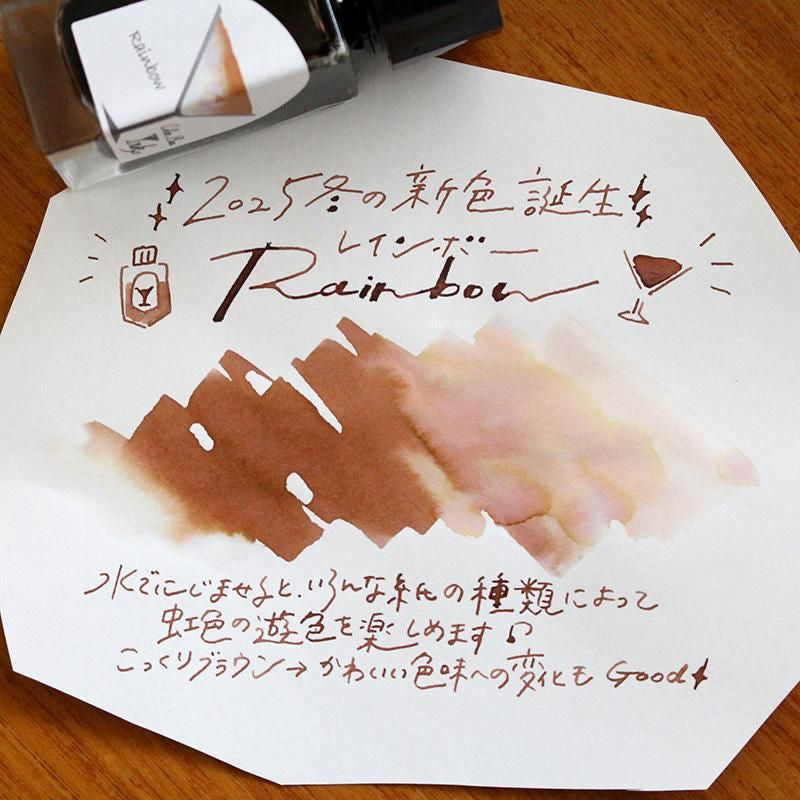 Rainbow
Ink
2025冬の新色誕生
レインボー
Rainbow
水でにじませると、いろんな紙の種類によって
虹色の遊色を楽しめます♫
こっくりブラウン→かわいい色味への変化もGood